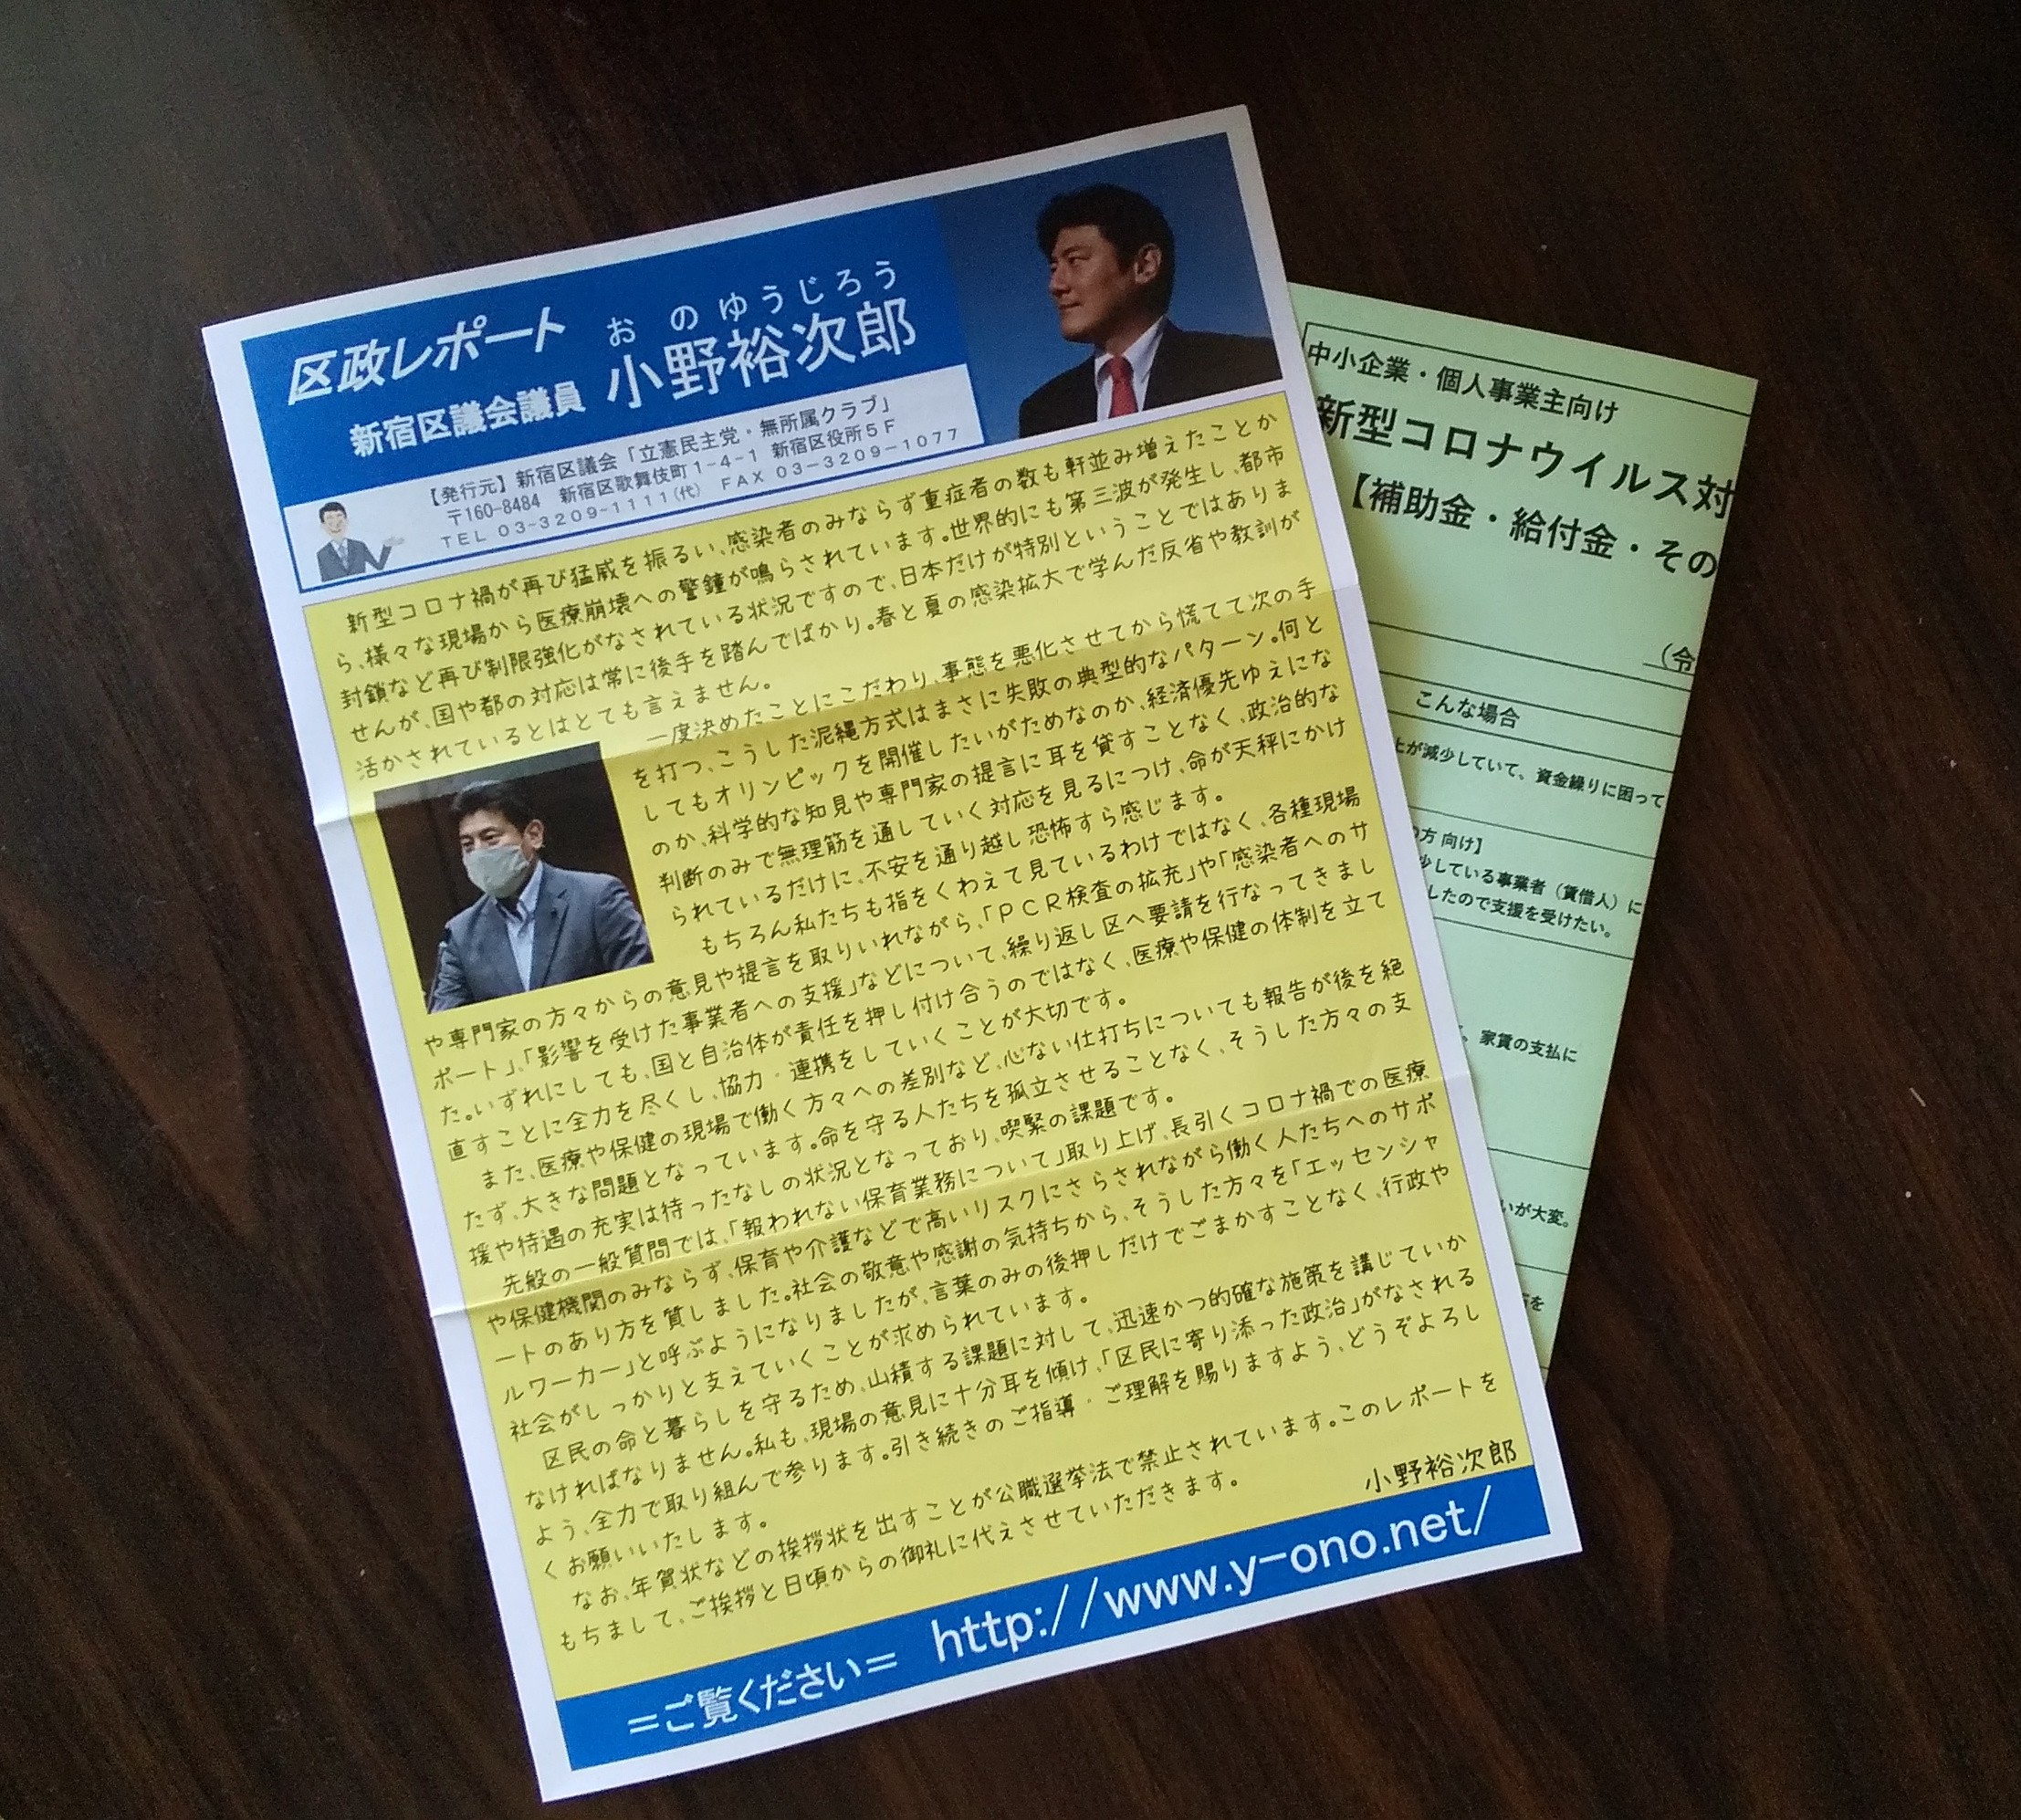 区政レポート
おのゆうじろう
新宿区議会議員 小野裕次郎
【発行元】新宿区議会「立憲民主党・無所属クラブ」
〒160-8484 新宿区歌舞伎町1-4-1 新宿区役所5F
TEL 03-3209-1111(代) FAX 03-3209-1077
新型コロナ禍が再び猛威を振るい、感染者のみならず重症者の数も軒並み増えたことか
ら、様々な現場から医療崩壊への警鐘が鳴らされています。世界的にも第三波が発生し、都市
封鎖など再び制限強化がなされている状況ですので、日本だけが特別ということではありま
せんが、国や都の対応は常に後手を踏んでばかり。春と夏の感染拡大で学んだ反省や教訓が
活かされているとはとても言えません。
一度決めたことにこだわり、事態を悪化させてから慌てて次の手
を打つ、こうした泥縄方式はまさに失敗の典型的なパターン。何と
してもオリンピックを開催したいがためなのか、経済優先ゆえにな
のか、科学的な知見や専門家の提言に耳を貸すことなく、政治的な
判断のみで無理筋を通していく対応を見るにつけ、命が天秤にかけ
られているだけに、不安を通り越し恐怖すら感じます。
もちろん私たちも指をくわえて見ているわけではなく、各種現場
や専門家の方々からの意見や提言を取りいれながら、「PCR検査の拡充」や「感染者へのサ
ポート」、「影響を受けた事業者への支援」などについて、繰り返し区へ要請を行なってきまし
た。いずれにしても、国と自治体が責任を押し付け合うのではなく、医療や保健の体制を立て
直すことに全力を尽くし、協力・連携をしていくことが大切です。
また、医療や保健の現場で働く方々への差別など、心ない仕打ちについても報告が後を絶
たず、大きな問題となっています。命を守る人たちを孤立させることなく、そうした方々の支
援や待遇の充実は待ったなしの状況となっており、喫緊の課題です。
先般の一般質問では、「報われない保育業務について」取り上げ、長引くコロナ禍での医療
や保健機関のみならず、保育や介護などで高いリスクにさらされながら働く人たちへのサポ
ートのあり方を質しました。社会の敬意や感謝の気持ちから、そうした方々を「エッセンシャ
ルワーカー」と呼ぶようになりましたが、言葉のみの後押しだけでごまかすことなく、行政や
社会がしっかりと支えていくことが求められています。
区民の命と暮らしを守るため、山積する課題に対して、迅速かつ的確な施策を講じていか
なければなりません。私も、現場の意見に十分耳を傾け、「区民に寄り添った政治」がなされる
よう、全力で取り組んで参ります。引き続きのご指導・ご理解を賜りますよう、どうぞよろし
くお願いいたします。
なお、年賀状などの挨拶状を出すことが公職選挙法で禁止されています。このレポートを
もちまして、ご挨拶と日頃からの御礼に代えさせていただきます。
小野裕次郎
=ご覧ください= http://www.y-ono.net/
中小企業・個人事業主向け
新型コロナウイルス対
【補助金・給付金・その
(令
こんな場合
が減少していて、資金繰りに困って
の方 向け】
少している事業者(賃借人)に
したので支援を受けたい。
、家賃の支払に
いが大変。
を